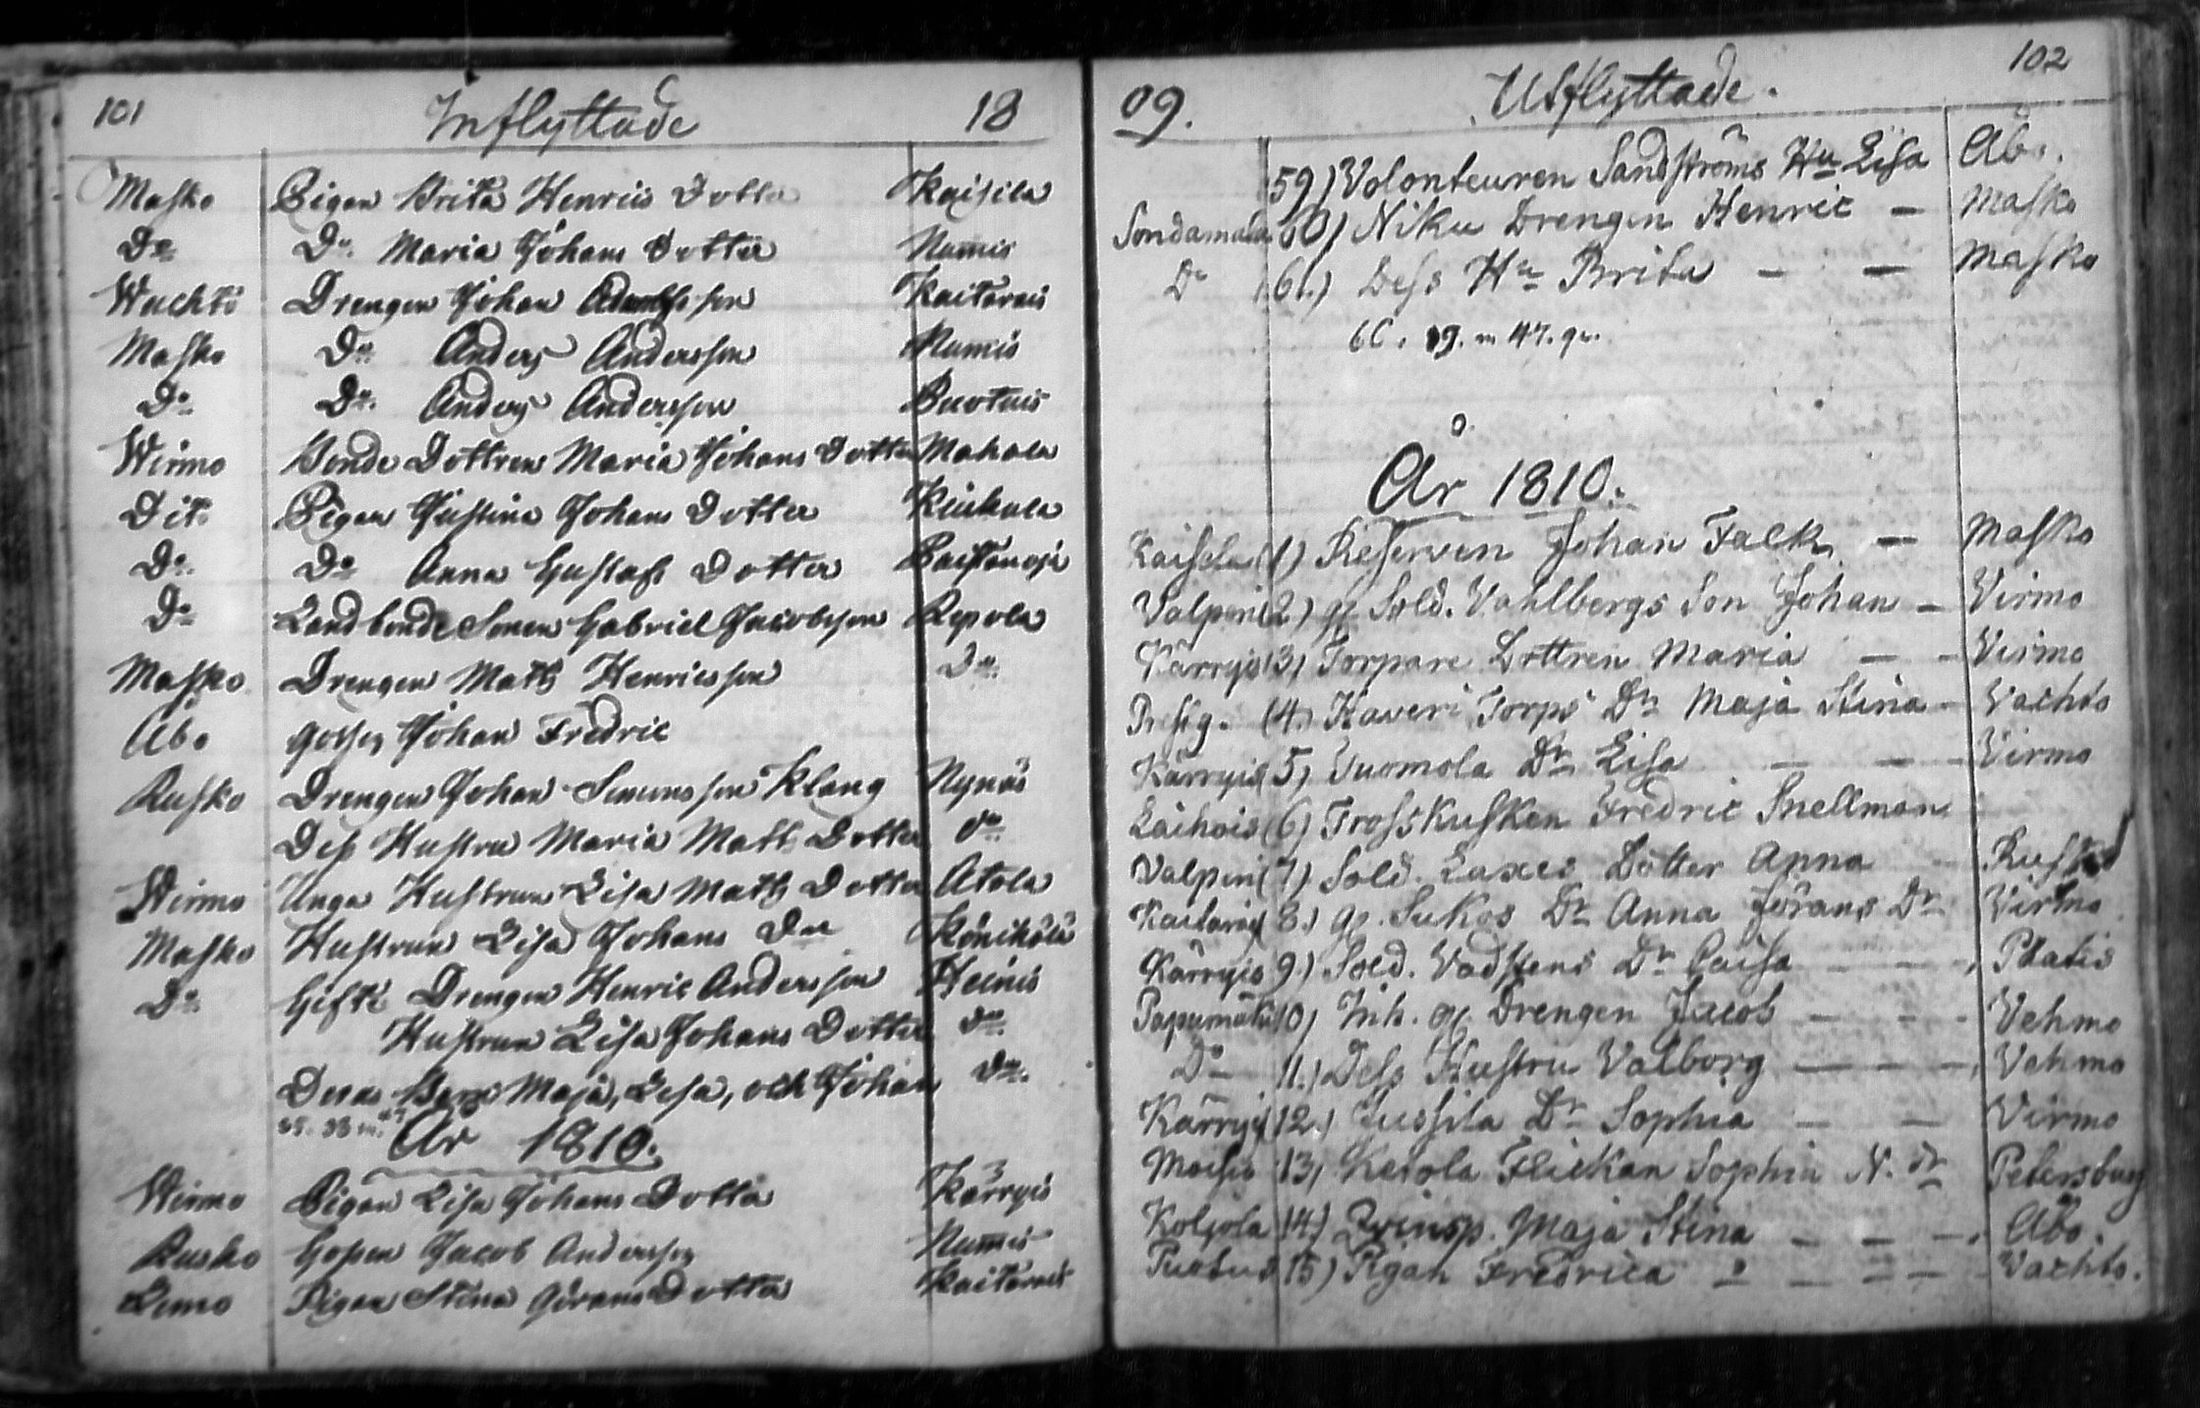 101 Inflyttade 18
Masko Pigan Brita Henrics Dotter Kaisila
Do Do Maria Johans Dotter Numis
Wachto Drengen Johan Kaitarais
Masko Do Anders Andersson Numis
Do Do Anders Andersson Puotuis
Wirmo Bonde Dottren Maria Johans Dotter Mahala
Dit. Pigan Justina Johans Dotter Kiukula
Do Do Anna Gustafs Dotter
Do Landbonde Sonen Gabriel Jacobsson Repola
Masko Drengen Matts Henricsson Do
Åbo Johan Fredric
Rusko Drengen Johan Simonsson Klang Nynäs
Dess Hustru Maria Matts Dotter do
Wirmo Unga Hustrun Lisa Matts Dotter Atola
Masko Hustrun Lisa Johans Dr Könikölä
Do Gifte Drengen Henric Andersson Heinis
Hustrun Lisa Johans Dotter do
Deras Barn Maja, Lisa, och Johan do
År 1810.
Wirmo Pigan Lisa Johans Dotter Kärryis
Rusko Gossen Jacob Andersson Numis
Lemo Pigan Stina Görans Dotter Kaitarais
09. Utflyttade. 102
59) Volonteuren Sandströms Hu Lisa Åbo.
Sondamala 60) Niku Drengen Henric — Masko
Do 61.) Dess Hu Brita — — Masko
År 1810.
Kaisela (1) Reserven Johan Falk — Masko
Valpori (2) gl Sold. Vahlbergs Son Johan — Virmo
Kärryis (3) Torpare Dottren Maria — — Virmo
Prstg. (4.) Kaveri Torps Dr Maja Stina — Vachto
Kärryis (5) Vuomola Dr Lisa — — — Virmo
Laihois (6) Trosskusken Fredric Snellman
Valpori (7) Sold. Laxes Dotter Anna — Rusko
Kaitarais (8.) gl. Sukos Dr Anna Jörans Dr Virmo
Kärryis (9.) Sold. Vadstens Dr Caisa — — — Phatis
10) Inh. gl. Drengen Jacob — — — Vehmo
Do 11.) Dess Hustru Valborg — — — Vehmo
Kärryis (12.) Jussila Dr Sophia — — Virmo
Moisio 13) Keiola Flickan Sophia N. dr Petersburg
Kolgola 14.) Maja Stina — — — Åbo.
15) Pigan Fredrica — — — — Vachto.